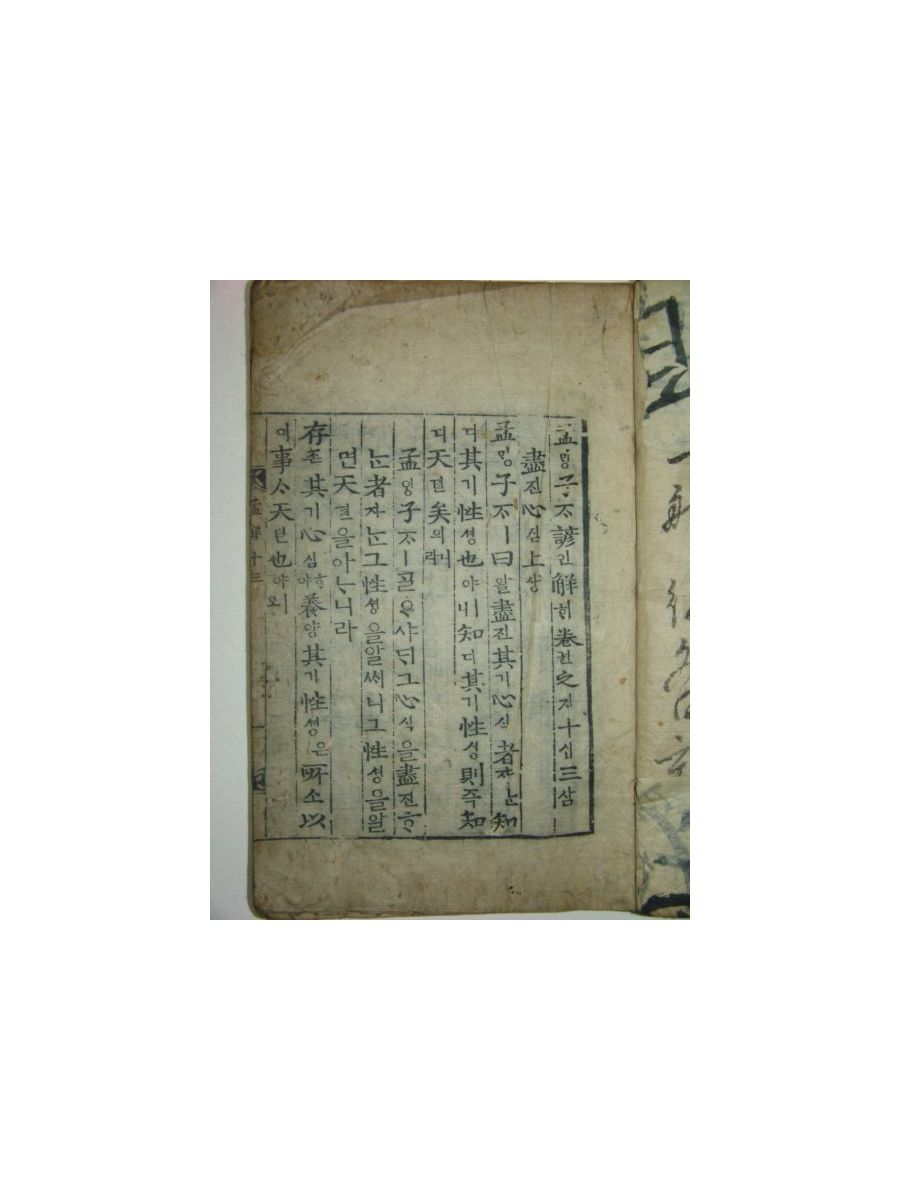 孟ᄆᆡᇰ子ᄌᆞ諺언解ᄒᆡ卷권之지十십三삼
盡진心심上샹
孟ᄆᆡᇰ子ᄌᆞㅣ曰왈盡진其기心심者쟈ᄂᆞᆫ知
디其기性셩也야ㅣ니知디其기性셩則즉知
디天텬矣의니라
孟ᄆᆡᇰ子ᄌᆞㅣᄀᆞᆯᄋᆞ샤ᄃᆡ그心심을盡진ᄒᆞᄂᆞᆫ
者쟈ᄂᆞᆫ그性셩을알ᄡᅵ니그性셩을알
면天텬을아ᄂᆞ니라
存존其기心심ᄒᆞ야養양其기性셩은所소以
이事ᄉᆞ天텬也야ㅣ오
孟解十三